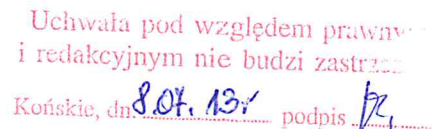 Uchwała pod względem prawnym
i redakcyjnym nie budzi zastrzeżeń
Końskie, dn. 8.07.13r podpis